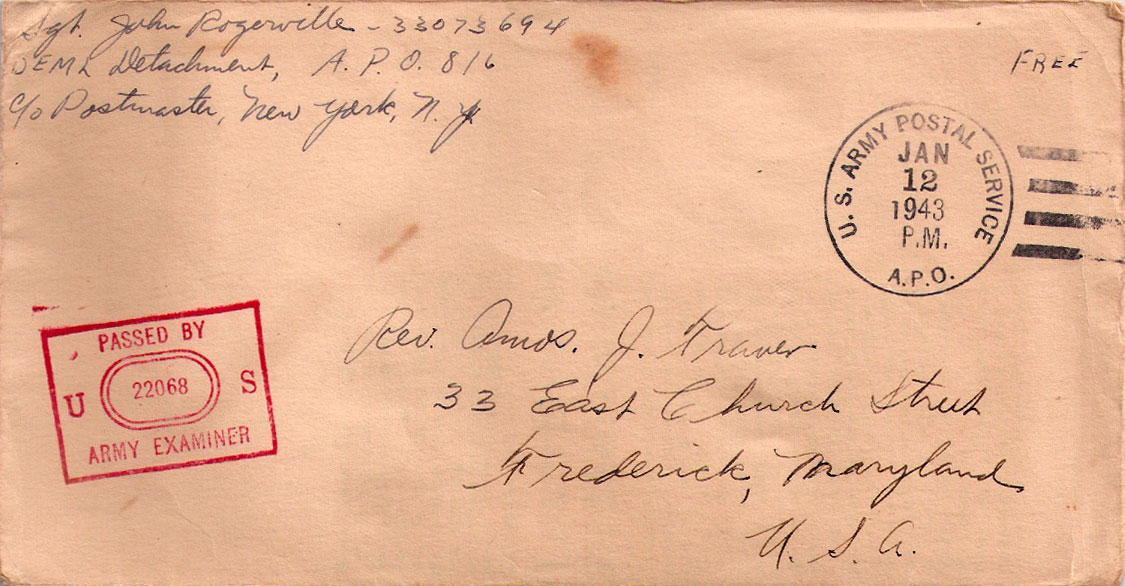 Sgt. John Rogerville - 33073694
DEML Detachment, A. P. O. 816
c/o Postmaster, New York, N. Y.
FREE
U. S. ARMY POSTAL SERVICE
JAN
12
1943
P.M.
A.P.O.
PASSED BY
U 22068 S
ARMY EXAMINER
Rev. Amos. J. Traver
33 East Church Street
Frederick, Maryland
U. S. A.